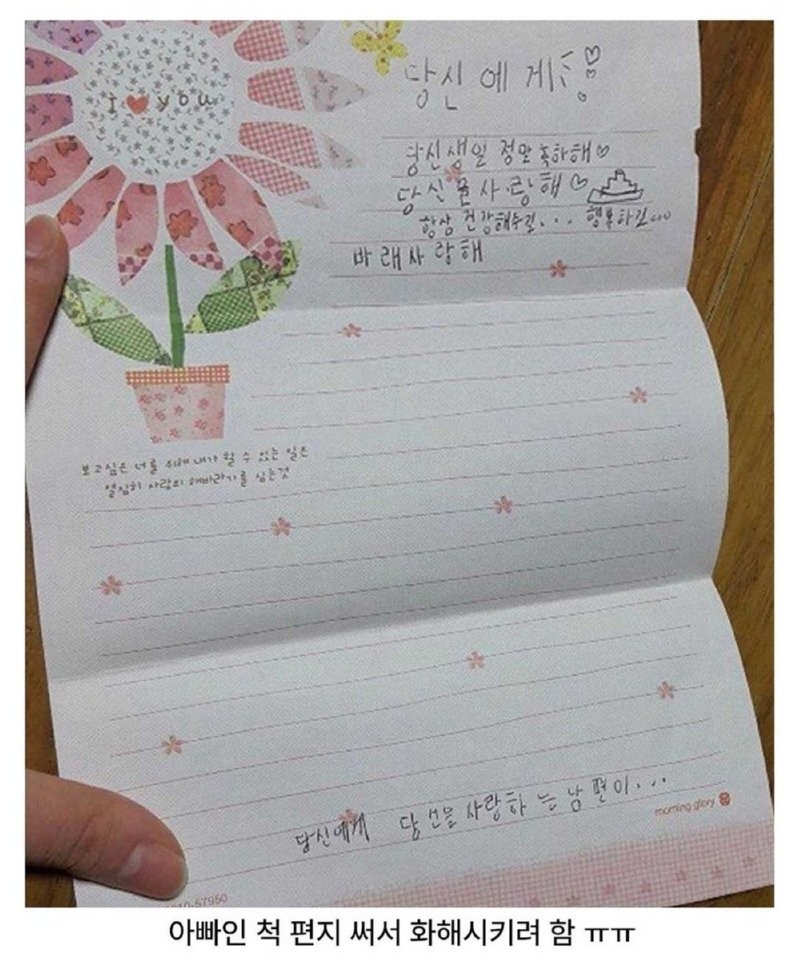 I ❤ you
당신에게
당신생일 정말 축하해♡
당신을사랑해♡
항상 건강해주길... 행복하길...
바래사랑해
보고싶은 너를 위해 내가 할 수 있는 일은
열심히 사랑의 해바라기를 심는것
당신에게 당신을사랑하는남편이...
morning glory
57950
아빠인 척 편지 써서 화해시키려 함 ㅠㅠ